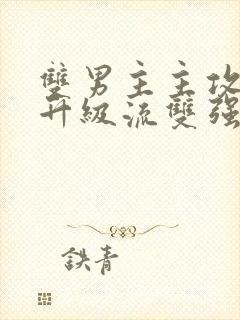 雙男主主攻
升級流雙强
鉄青